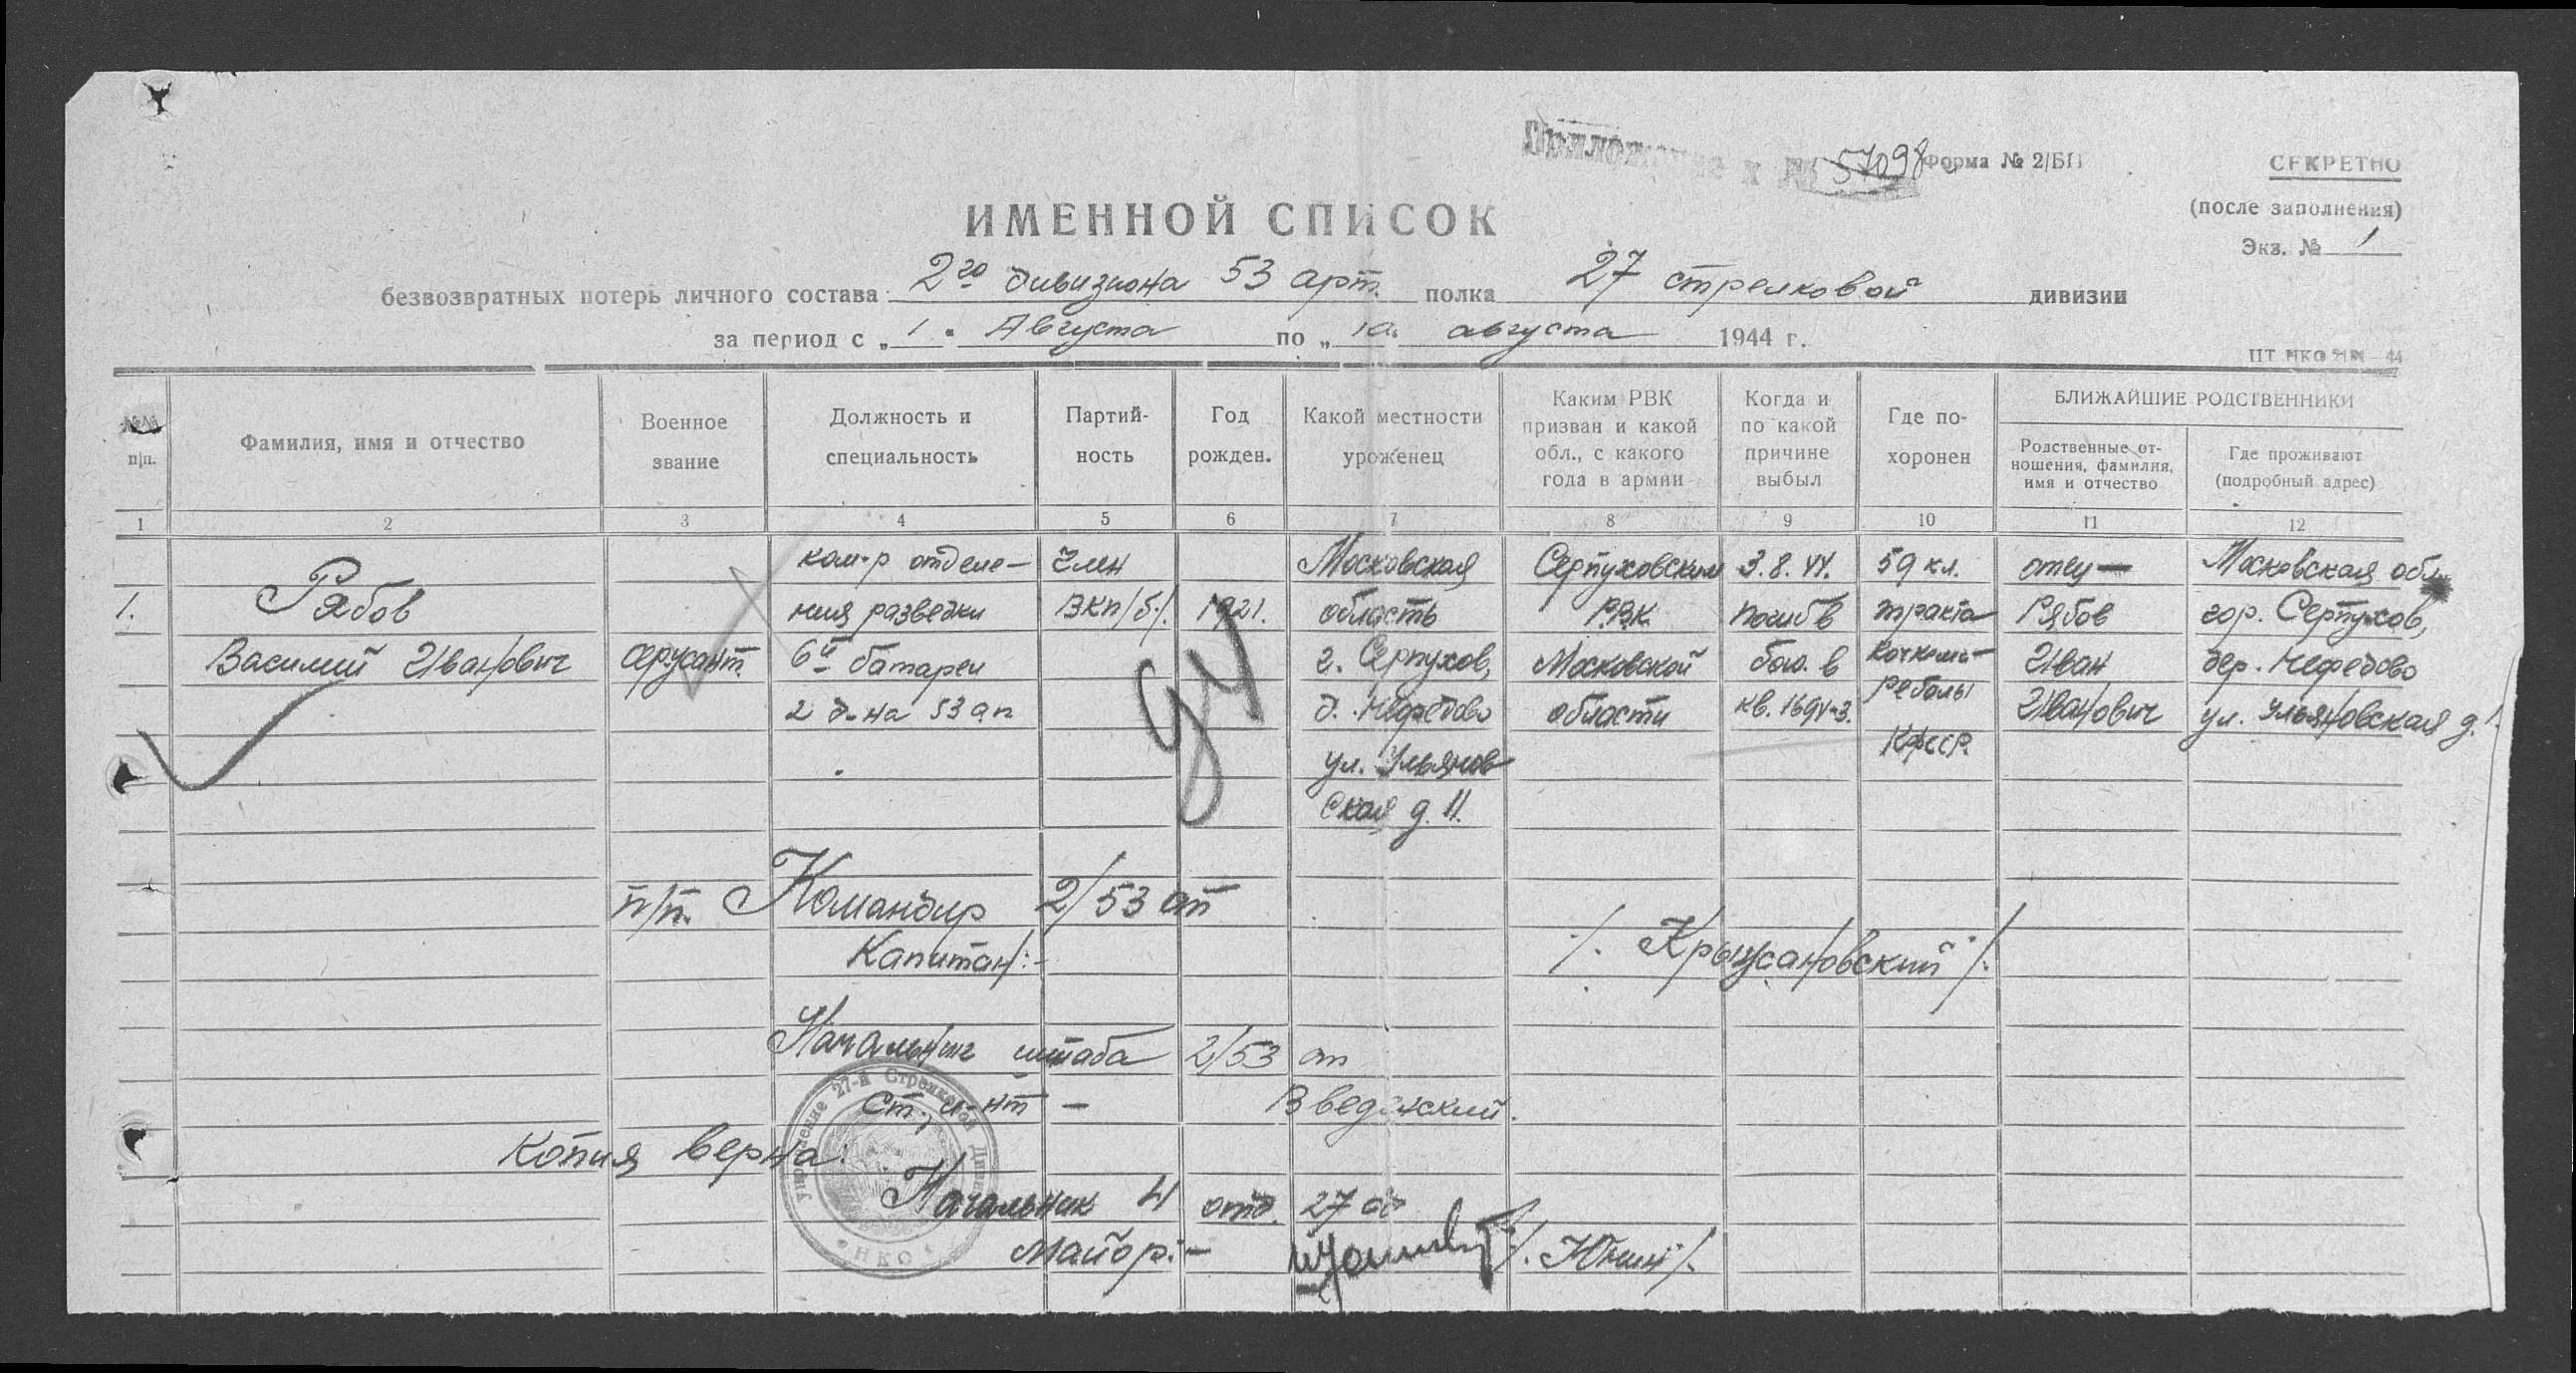 Приложение к № 57098
Форма № 2/БП
СЕКРЕТНО
(после заполнения)
Экз. № 1
ИМЕННОЙ СПИСОК
безвозвратных потерь личного состава 2го дивизиона 53 арт. полка 27 стрелковой дивизии
за период с „1" Августа по „10" августа 1944 г.
№№ п|п.
Фамилия, имя и отчество
Военное звание
Должность и специальность
Партий-ность
Год рожден.
Какой местности уроженец
Каким РВК призван и какой обл., с какого года в армии
Когда и по какой причине выбыл
Где по-хоронен
БЛИЖАЙШИЕ РОДСТВЕННИКИ
Родственные от-ношения, фамилия, имя и отчество
Где проживают (подробный адрес)
1 2 3 4 5 6 7 8 9 10 11 12
1.
Рябов
Василий Иванович
сержант.
ком-р отделе-
ния разведки
6й батареи
2 д-на 53 ап
Член
ВКП/б/.
1921.
Московская
область
г. Серпухов,
д. Нефедово
ул. Ульянов
ская д. 11.
Серпуховским
РВК.
Московской
области
3.8.44.
погиб в
бою в
кв. 1694-З.
59 кл.
тракта
Кочкома-
Реболы
КФССР.
отец —
Рябов
Иван
Иванович
Московская обл.
гор. Серпухов,
дер. Нефедово
ул. Ульяновская д.
94
п/п. Командир 2/53 ап
Капитан:-
Начальник штаба 2/53 ап
Ст. л-нт —
Введенский.
Управление 27-й Стрелковой
НКО
Копия верна:
Начальник 4 отд. 27 сд
Майор:- /. Юнин /.